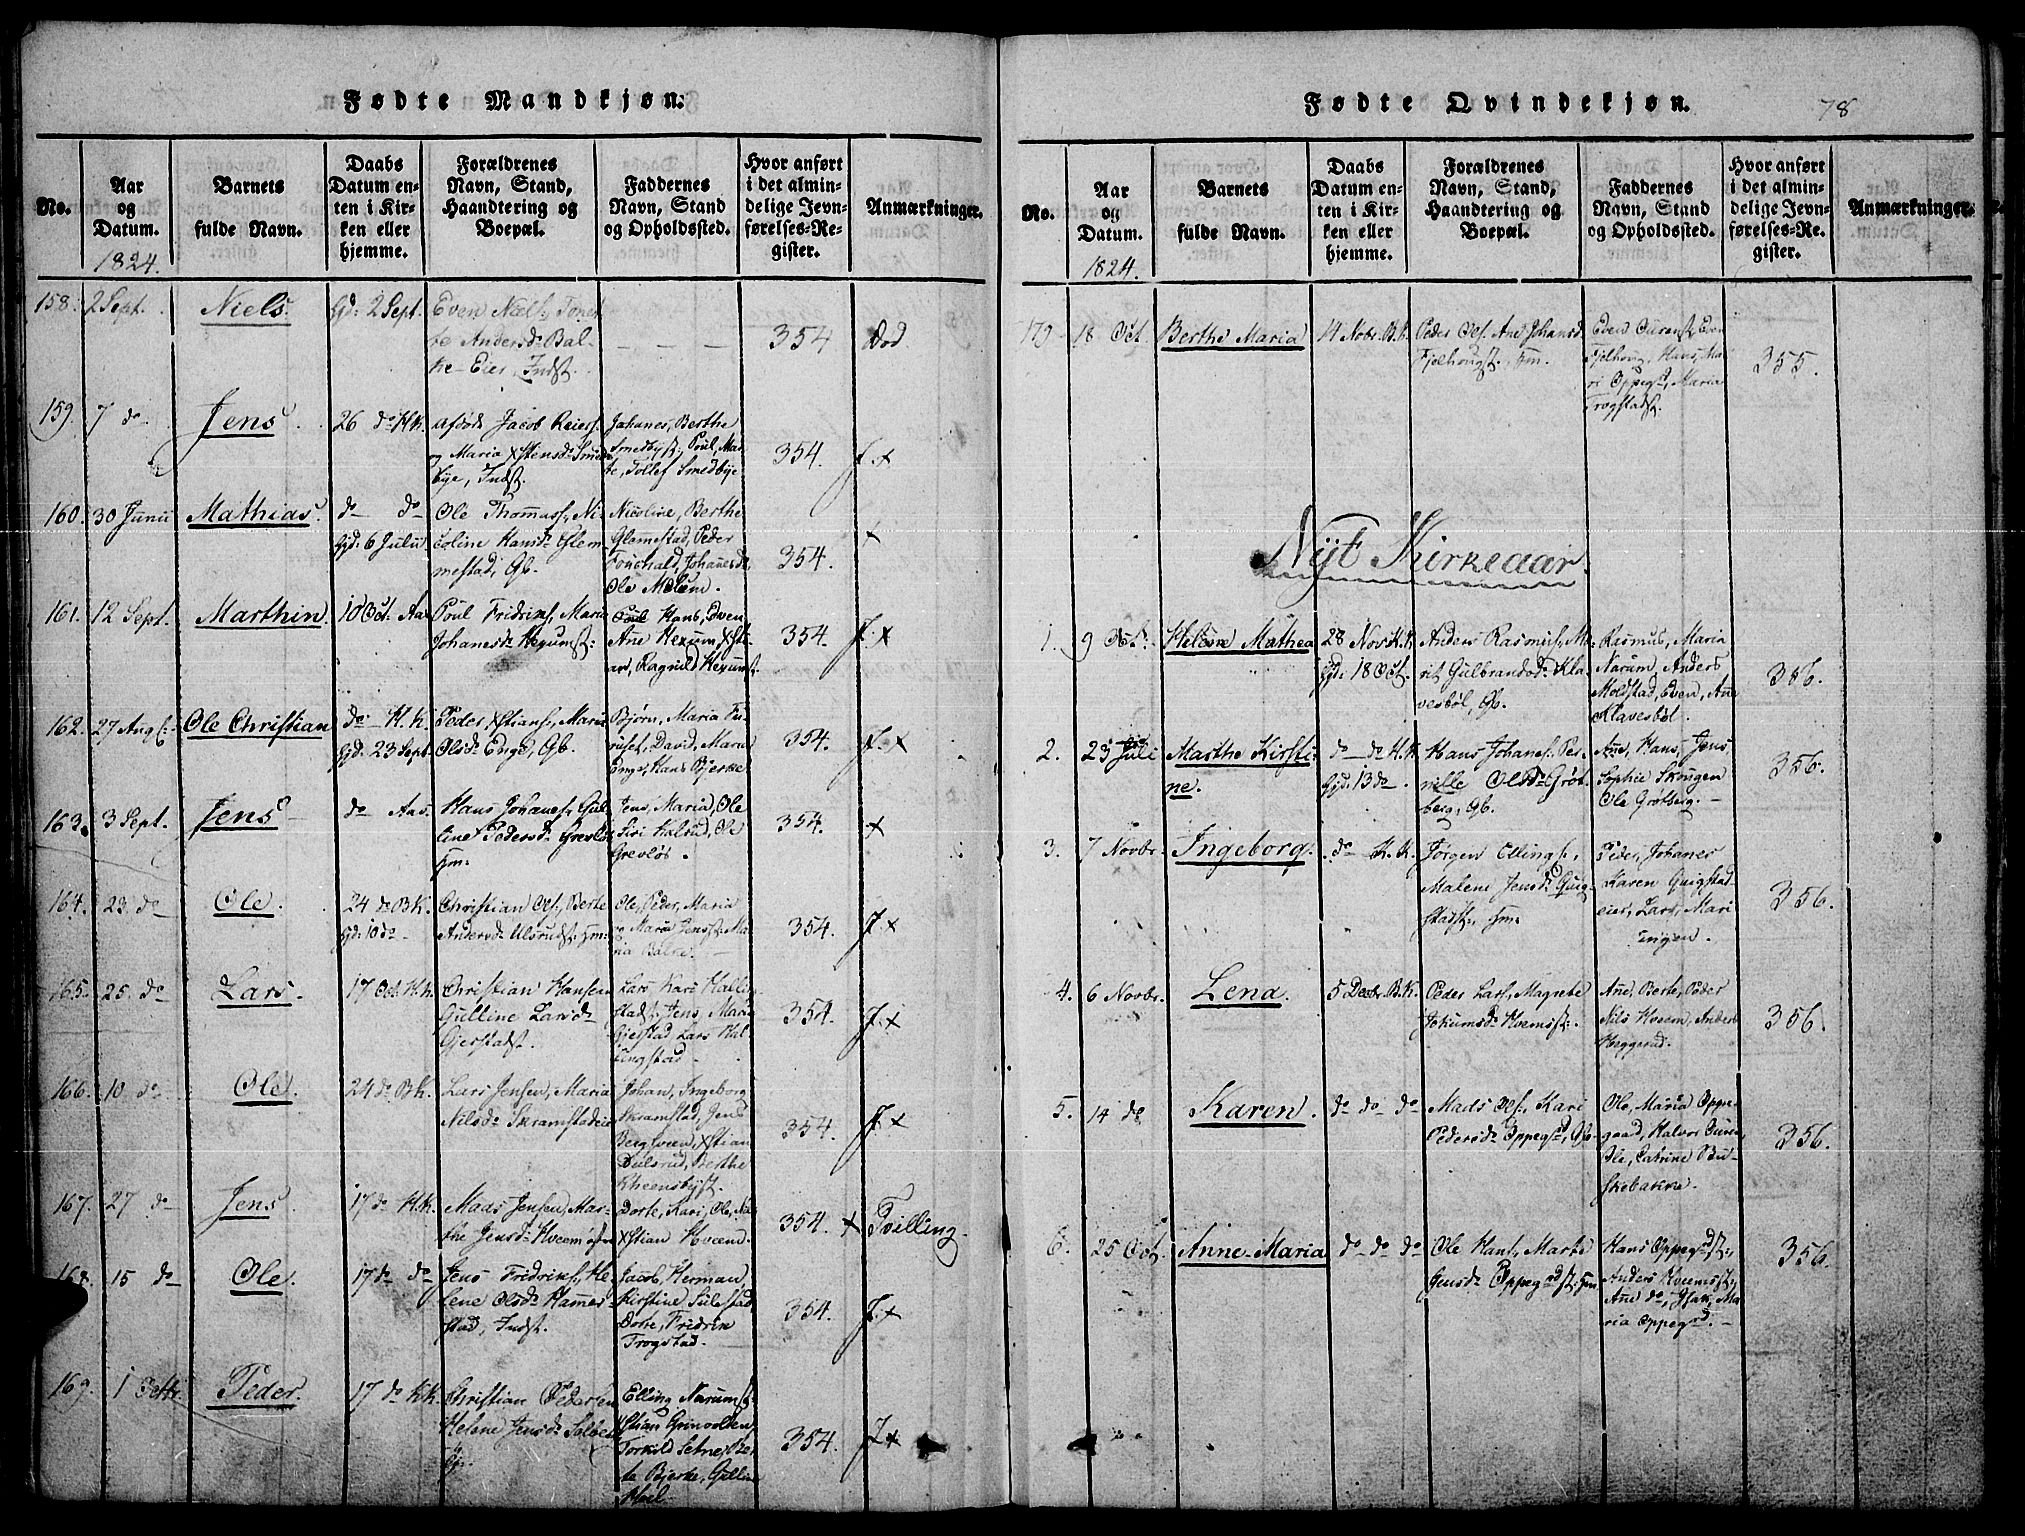 Fødte Mandkjøn.
No.
Aar
og
Datum.
1824.
Barnets
fulde Navn.
Daabs
Datum en-
ten i Kir-
ken eller
hjemme.
Forældrenes
Navn, Stand,
Haandtering og
Boepæl.
Faddernes
Navn, Stand
og Opholdssted.
Hvor anført
i det almin-
delige Jevn-
førelses-Re-
gister.
Anmærkninger.
158. 2 Sept. Niels. Gd: 2 Sept. Even Næls:
Andersdr Bal-
ke-Eier, Indst. 354 Død
159. 7 do Jens 26 do H.K. Jacob Reiers.
og Maria Xstensdr Smed-
bye, Indst.
Johanes, Berthe
Smedbyst:, Poul, Mar-
te, Tollef Smedbye
354. J. x
160. 30 Junii Mathias. do do
Gd: 6 Julii
Ole Thomass:, Ni-
coline Hansdr Glem-
mestad, Gb.
Nicoline, Berthe
Glemestad, Peder
Ole Melum.
354. x
161. 12 Sept. Marthin. 10 Oct: Aas
Poul Fridriks, Maria
Johanesdr Hexumst:
Poul Hans, Even
Ane Hexum,
Ragnild Hexumst.
354. J. x
162. 27 Aug: Ole Christian do H.K.
Gd: 23 Sept
Peder Xstians:, Maria
Olsdr Enge, Gb.
Bjørn, Maria Fu-
ruset, David, Maria
Enge, Hans Bjerke
354. J. x
163. 3 Sept. Jens do Aas.
Hans Johanes:, Gul-
line Pedersdr Grevløs
Hm:
Jens, Maria, Ole
Siri Kalrud, Ole
Grevløs.
354. x
164. 23. do Ole. 24 do B.K.
Gd: 10 do
Christian Ols:, Berte
Andersdr Ulsrudst: Hm:
Ole, Peder, Maria
Maria Jensst: Ma-
ria Balke.
354. J x
165. 25. do Lars. 17 Oct. H.K.
Christian Hansen
Gulline Larsdr
Gjerstadst.
Lars Kari Hallin
stadst:, Jens, Maria
Gjerstad Lars Hal-
lingstad
354. J. x
166. 10 do Ole. 24 do B.K.
Lars Jensen, Maria
Nilsdr Skramstadeie
Johan, Ingeborg
Skramstad, Jens
Bergsveen, Xstian
Dulsrud, Berthe
354. J. x
167. 27 do Jens 17 do H.K.
Mads Jensen, Mar-
the Jensdr Kveem
Dorte, Kari, Ole, Nils
Xstian Hveem.
354. x Tvilling.
168. 15 do Ole. 17 do do
Jens Fridriks:, He-
lene Olsdr Hammer-
stad, Indst.
Jacob, Herman,
Kirstine Sulestad
Dorte, Fridrik
Trogstad.
354. J. x
169. 1 Peder. 17 do H.K.
Christian Pedersen
Helene Jensdr
Elling Narumst:
Xstian Grinvolden
Torkild Setne, Ber-
te Bjerke, Gulline
Hoel
354. J x
Fødte Qvindekjøn. 78
No.
Aar
og
Datum.
1824.
Barnets
fulde Navn.
Daabs
Datum en-
ten i Kir-
ken eller
hjemme.
Forældrenes
Navn, Stand,
Haandtering og
Boepæl.
Faddernes
Navn, Stand
og Opholdssted.
Hvor anført
i det almin-
delige Jevn-
førelses-Re-
gister.
Anmærkninger.
179 18 Oct. Berthe Maria 14 Nobr. B.K.
Peder Ols: Ane Johansd
Fjelhougst:, Hm.
Even Even
Fjelhoug, Hans, Ma-
ri Oppegd, Maria
Trogstadst.
355.
Nyt Kirkeaar.
1. 9 Oct. Helene Mathea 28 Nov. H.K
Gd: 18 Oct.
Anders Rasmus:, Ma-
rit Gulbrandsdr Kla-
vesbøl, Gb.
Rasmus, Maria
Narum, Anders
Moldstad, Even, Ane
Klavesbøl.
356.
2. 23 Juli Marthe Kirsti-
ne. do do H.K
Gd: 13 do
Hans Johanes: Per-
nille Olsdr Grøt-
berg, Gb.
Ane, Hans, Jens
Sophie Skougen
Ole Grøtberg.
356.
3. 7 Novbr. Ingeborg. do H.K.
Jørgen Ellings:,
Malene Jensdr Gaig-
stadst:, Hm:
Peder, Johanes
Karen Gaigstad-
eier, Lars, Mari
Engen.
356.
4. 6 Novbr. Lena. 5 Decbr. B.K.
Peder Lars:, Magrete
Jokumsdr Hveemst:.
Ane, Berte, Peder
Nils Hveem, Anders
Heggerud.
356.
5. 14 do Karen. do do do
Mads Ols:, Kari
Pedersdr Oppegd, Gb
Ole, Maria Oppe-
gaard, Halvor
Ole, Catrine Bu-
skebakke.
356.
6. 25 Oct. Anne Maria do do do
Ole Hans:, Marte
Jensdr Oppegrdst: Hm
Hans Oppegdst:,
Anders Hveemst:,
Ane do, Isak, Ma-
ria Oppegrd.
356.